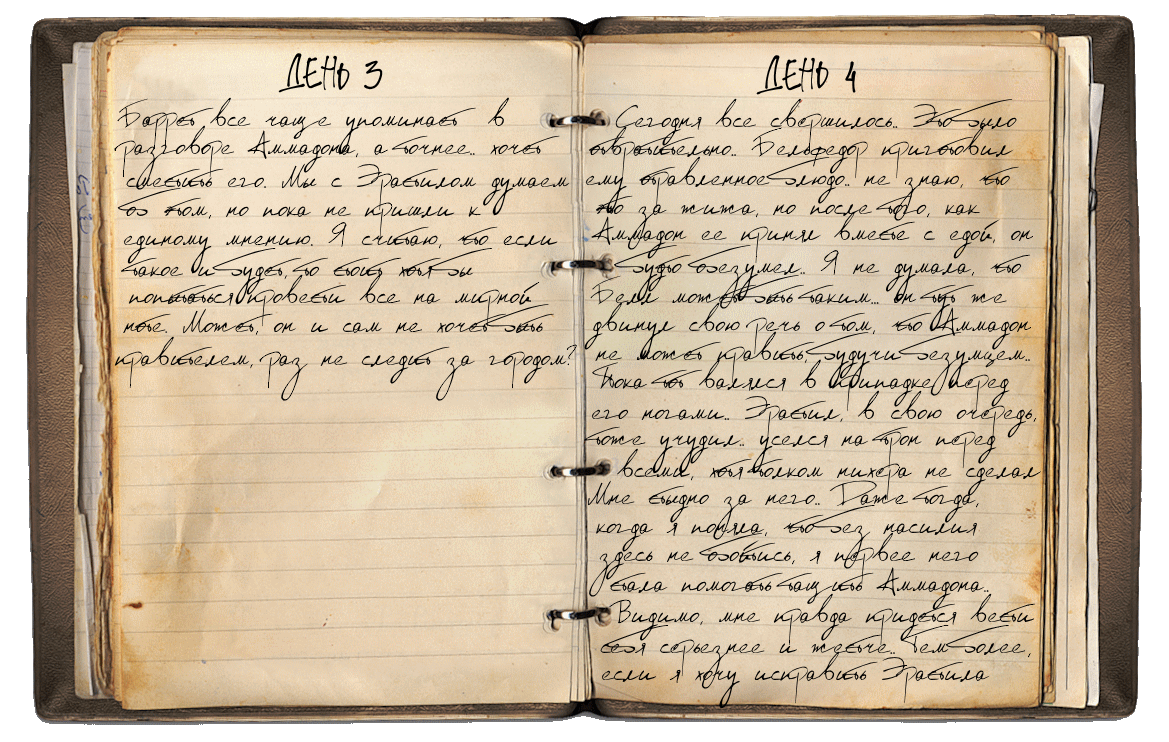 ДЕНЬ 3
Баррет все чаще упоминает в
разговоре Аммадона, а точнее.. хочет
сместить его. Мы с Эрастилом думаем
об этом, но пока не пришли к
единому мнению. Я считаю, что если
такое и будет, то стоит хотя бы
попытаться провести все на мирной
ноте. Может, он и сам не хочет быть
правителем, раз не следит за городом?
ДЕНЬ 4
Сегодня все свершилось.. Это было
отвратительно.. Бельфедор приготовил
ему отравленное блюдо.. не знаю, что
это за жижа, но после того, как
Аммадон ее принял вместе с едой, он
будто обезумел.. Я не думала, что
Белл может быть таким... он тут же
двинул свою речь о том, что Аммадон
не может править, будучи безумцем..
Пока тот валялся в припадке перед
его ногами.. Эрастил, в свою очередь,
тоже учудил.. уселся на трон перед
всеми, хотя толком нихера не сделал
Мне стыдно за него.. Даже тогда,
когда я поняла, что без насилия
здесь не обойтись, я первее него
стала помогать тащить Аммадона..
Видимо, мне правда придется вести
себя серьезнее и жестче.. Тем более,
если я хочу исправить Эрастила